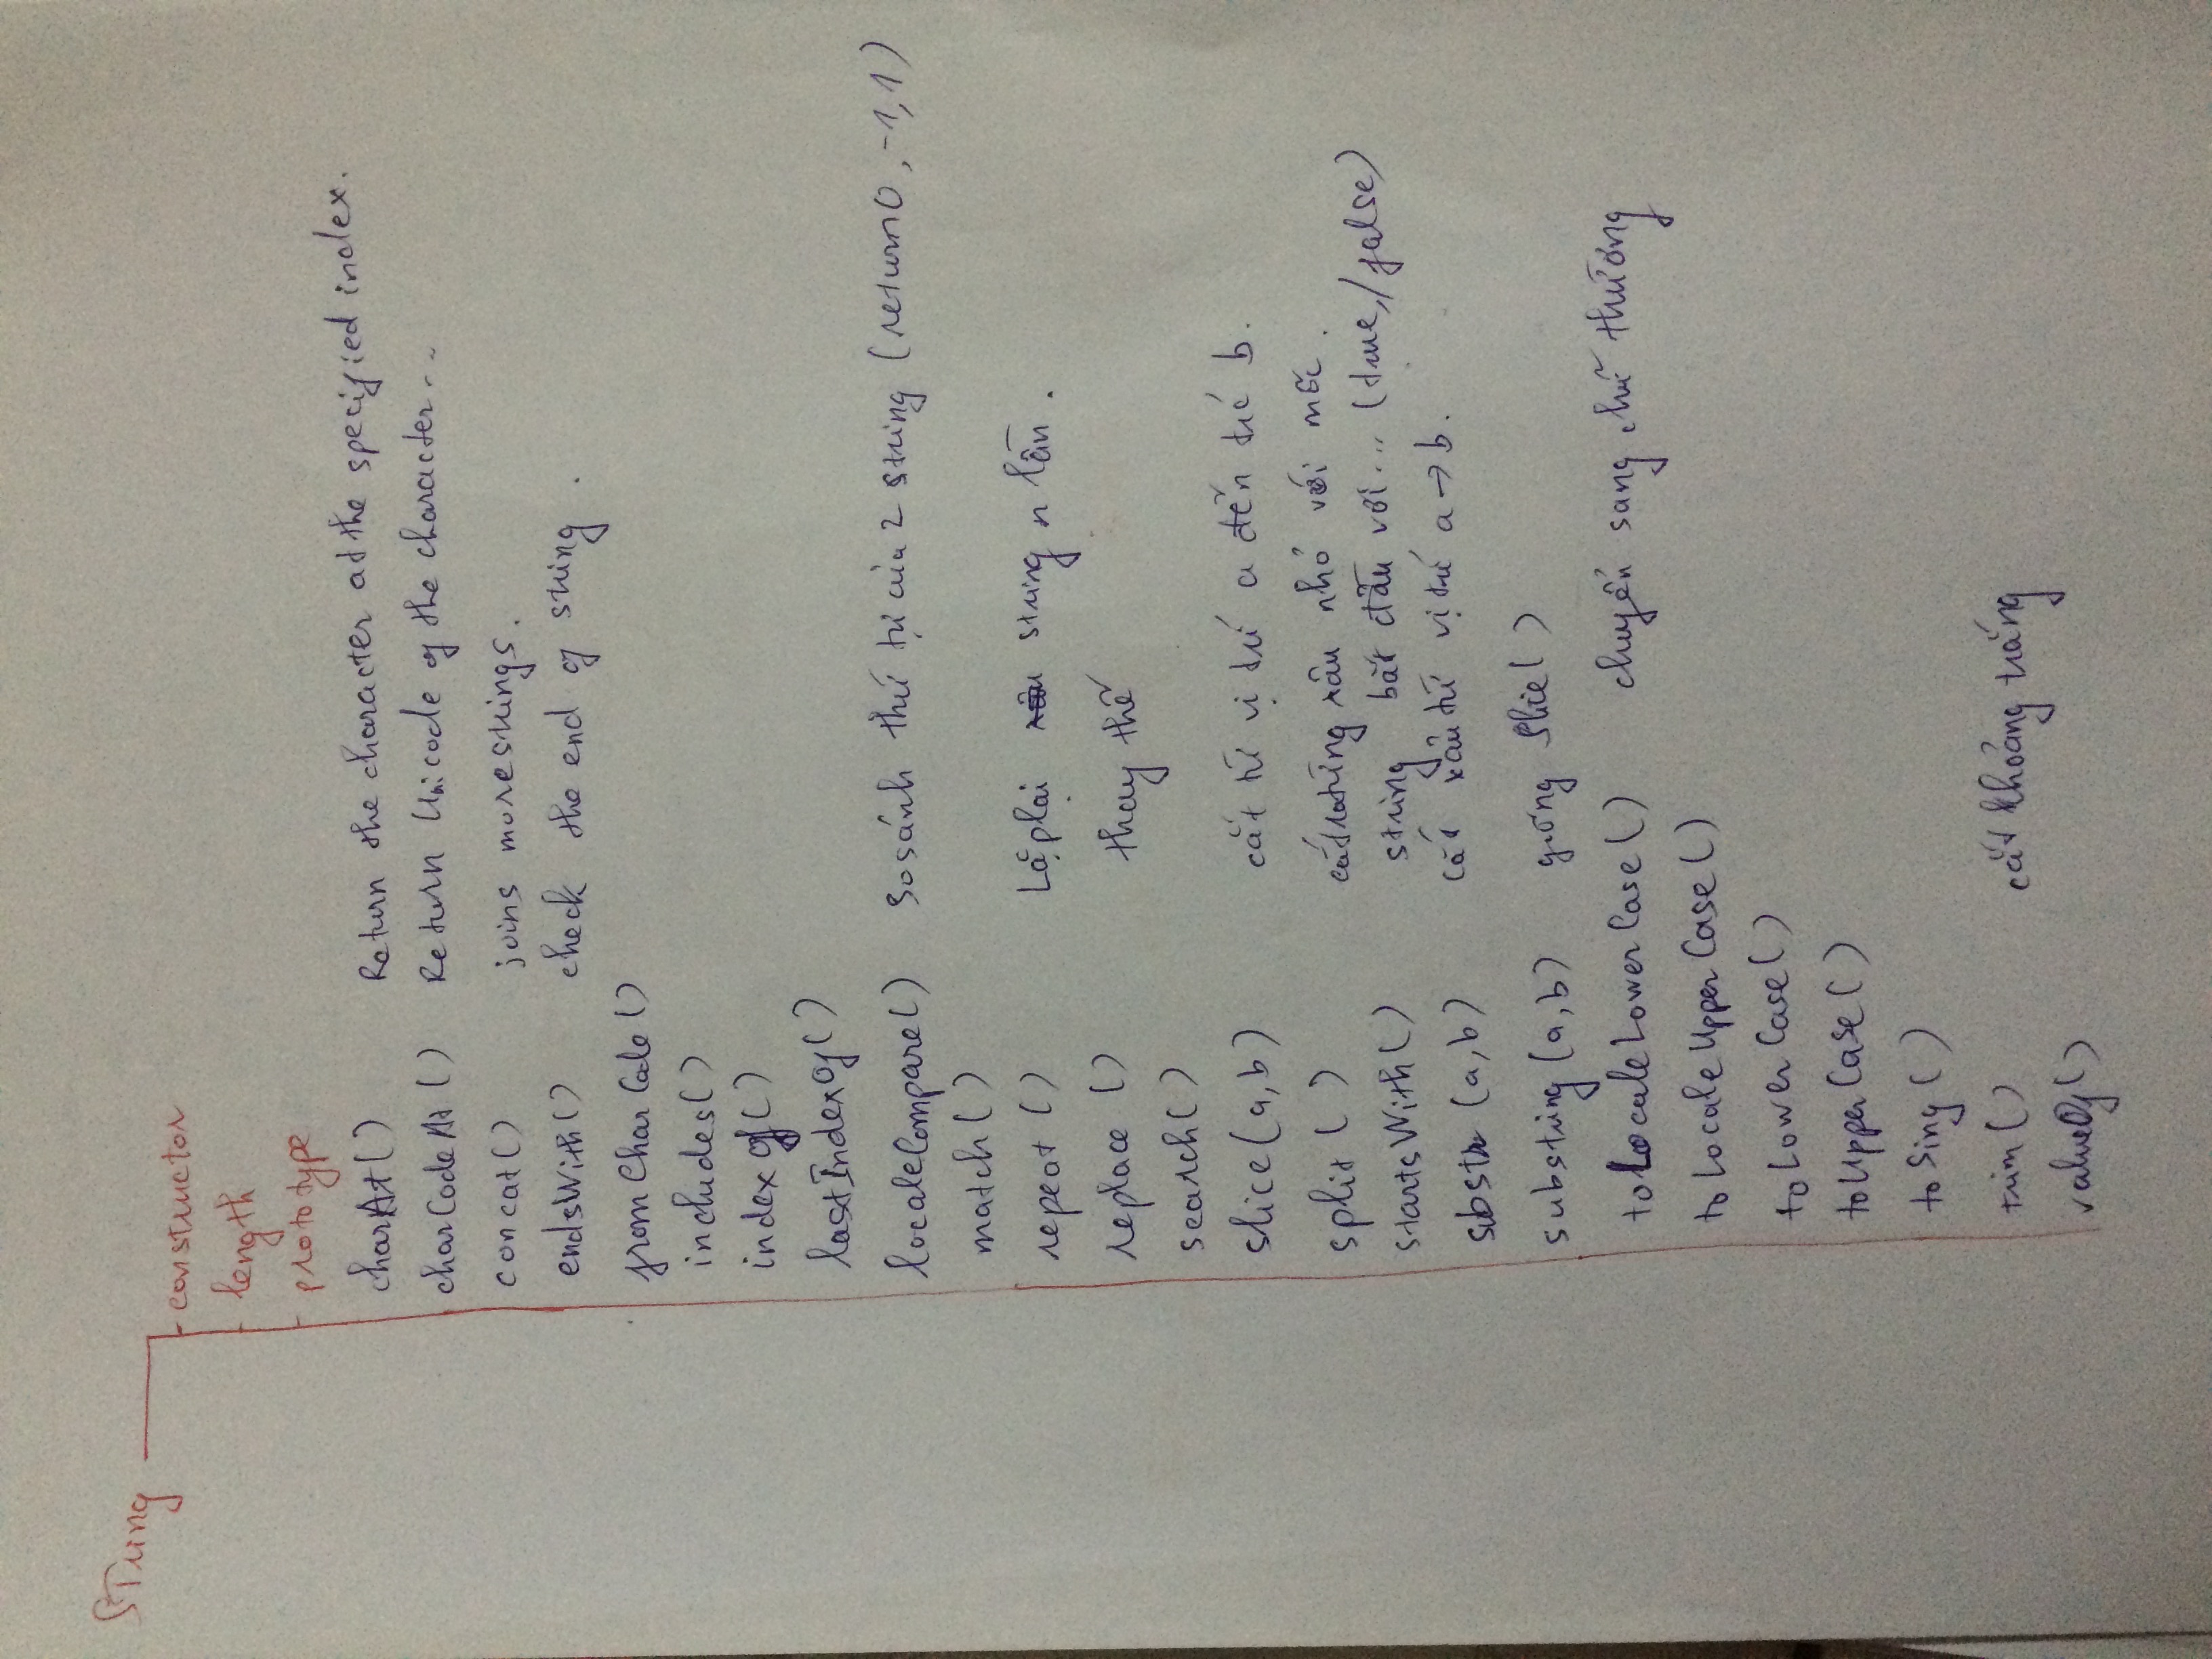 STring
constructor
length
prototype
charAt() Return the character at the specified index.
charCodeAt() Return Unicode of the character...
concat() joins more strings.
endsWith() check the end of string.
fromCharCode()
includes()
indexOf()
lastIndexOf()
localeCompare() So sánh thứ tự của 2 string (return 0, -1, 1)
match()
repeat() Lặp lại string n lần.
replace() thay thế
search()
slice(a,b) cắt từ vị trí a đến trc b.
split() cắt ra từng xâu nhỏ với mốc.
startsWith() string bắt đầu với... (true/false)
substr(a,b) cắt xâu từ vị trí a → b.
substring(a,b) giống slice()
toLocaleLowerCase() chuyển sang chữ thường
toLocaleUpperCase()
toLowerCase()
toUpperCase()
toSing()
trim() cắt khoảng trắng
valueOf()